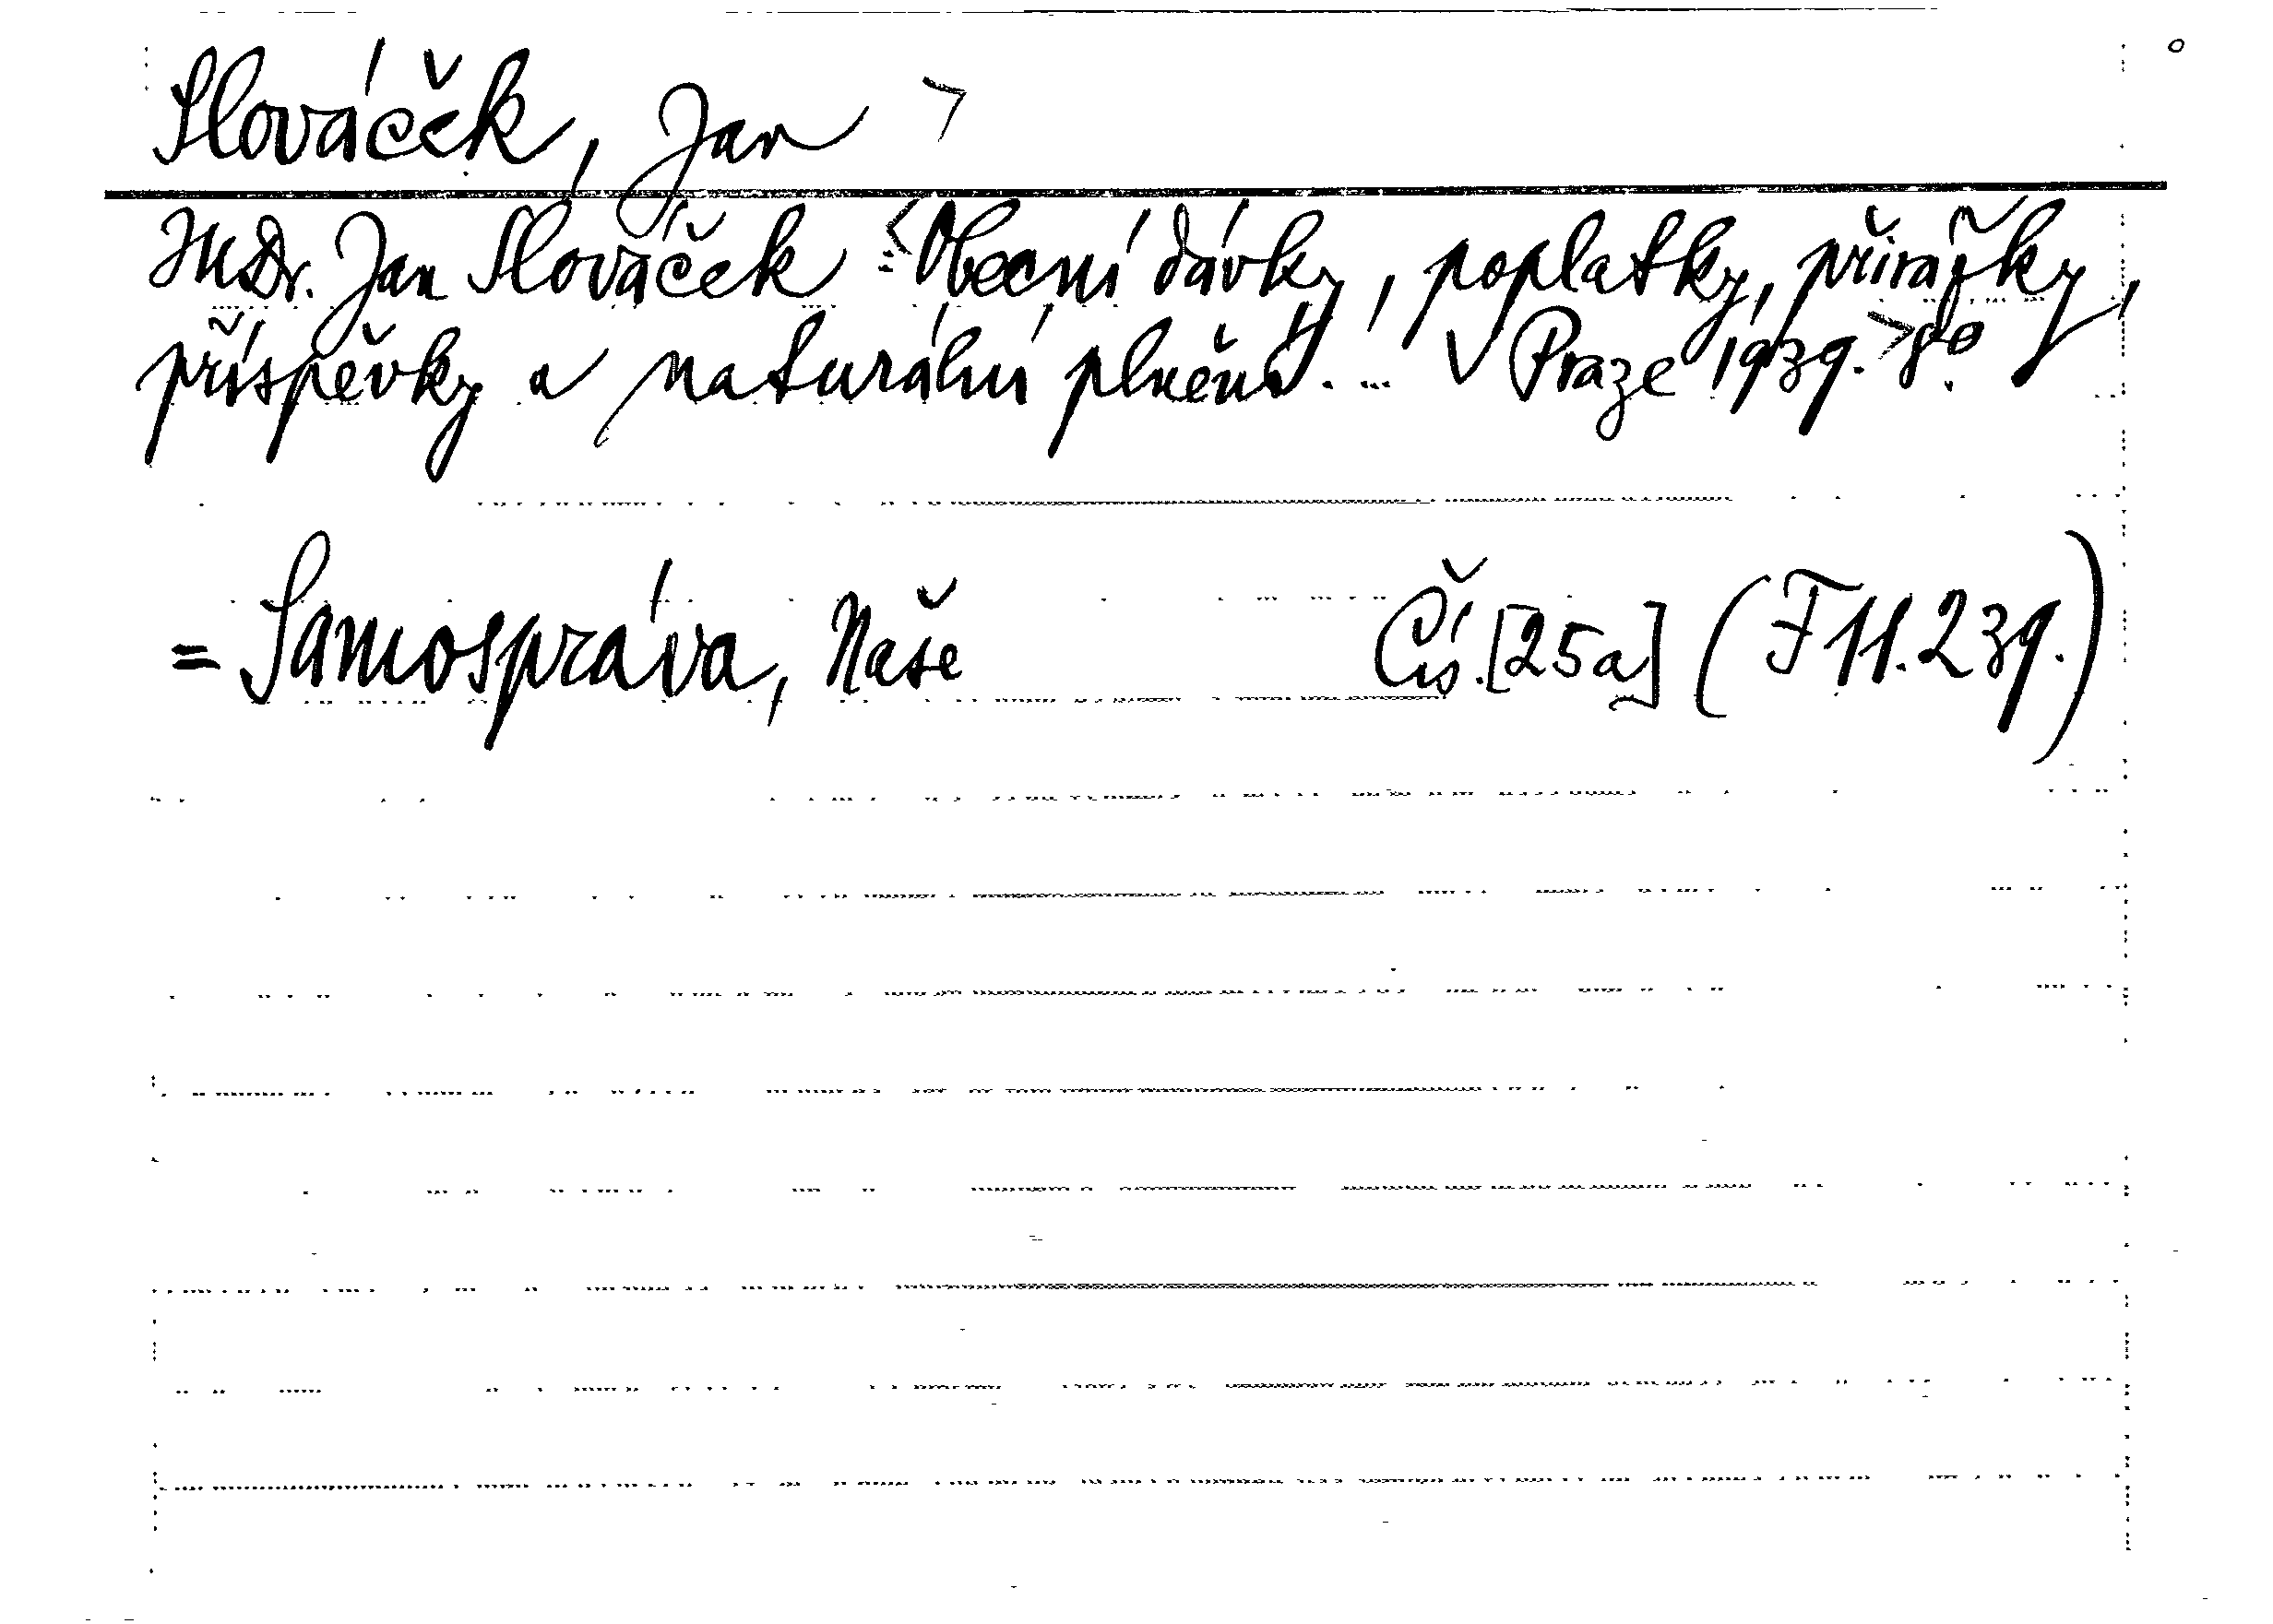 Slováček, Jan >
JUDr. Jan Slováček : <Obecní dávky, poplatky, přirážky,
příspěvky a naturální plnění. ... V Praze 1939.> 8º.
= Samospráva, Naše Čís. [25a] (F 11.239.)